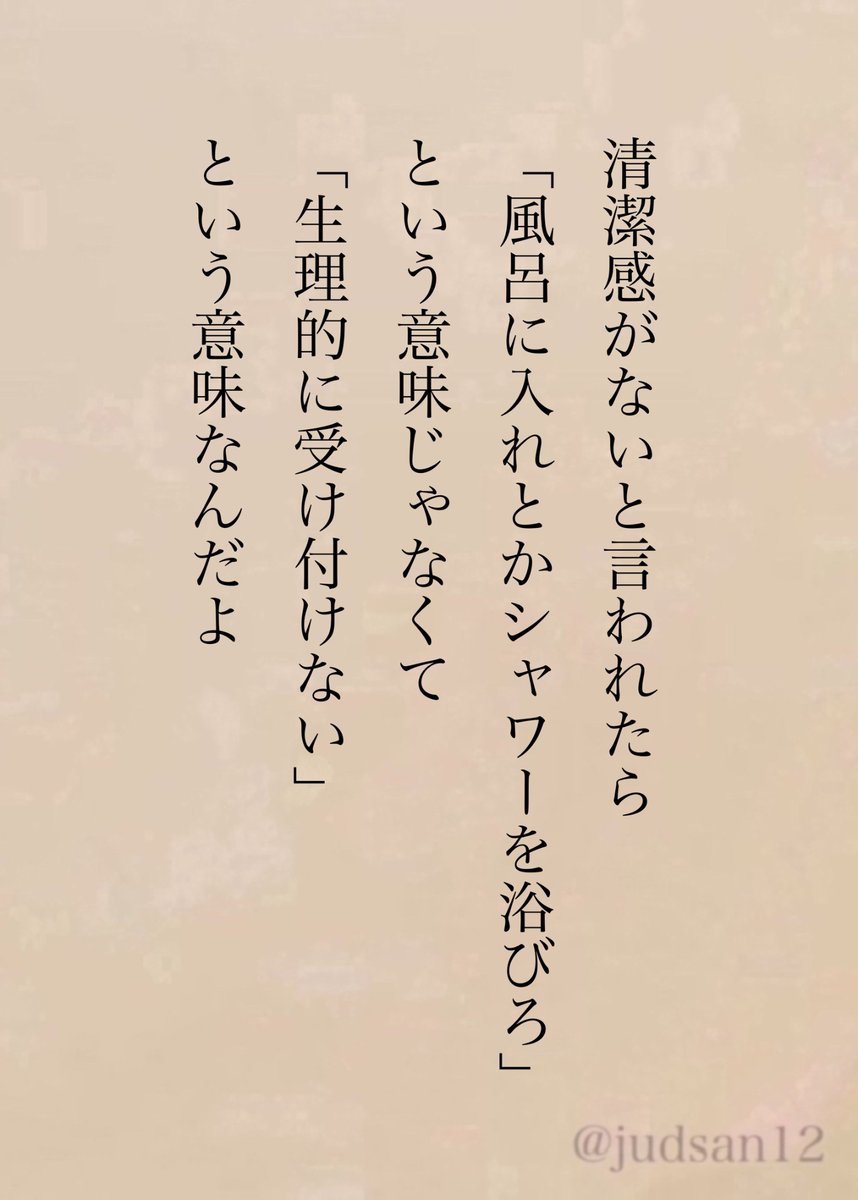 清潔感がないと言われたら
「風呂に入れとかシャワーを浴びろ」
という意味じゃなくて
「生理的に受け付けない」
という意味なんだよ
@judsan12